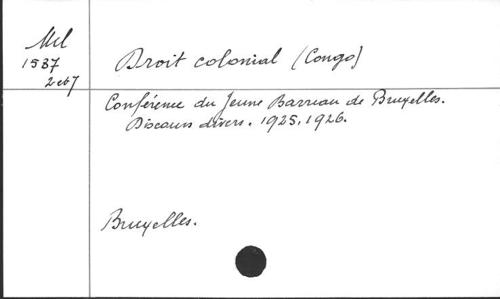 Mel
1537
2 et 7
Droit colonial (Congo)
Conférence du Jeune Barreau de Bruxelles.
Discours divers. 1925, 1926.
Bruxelles.